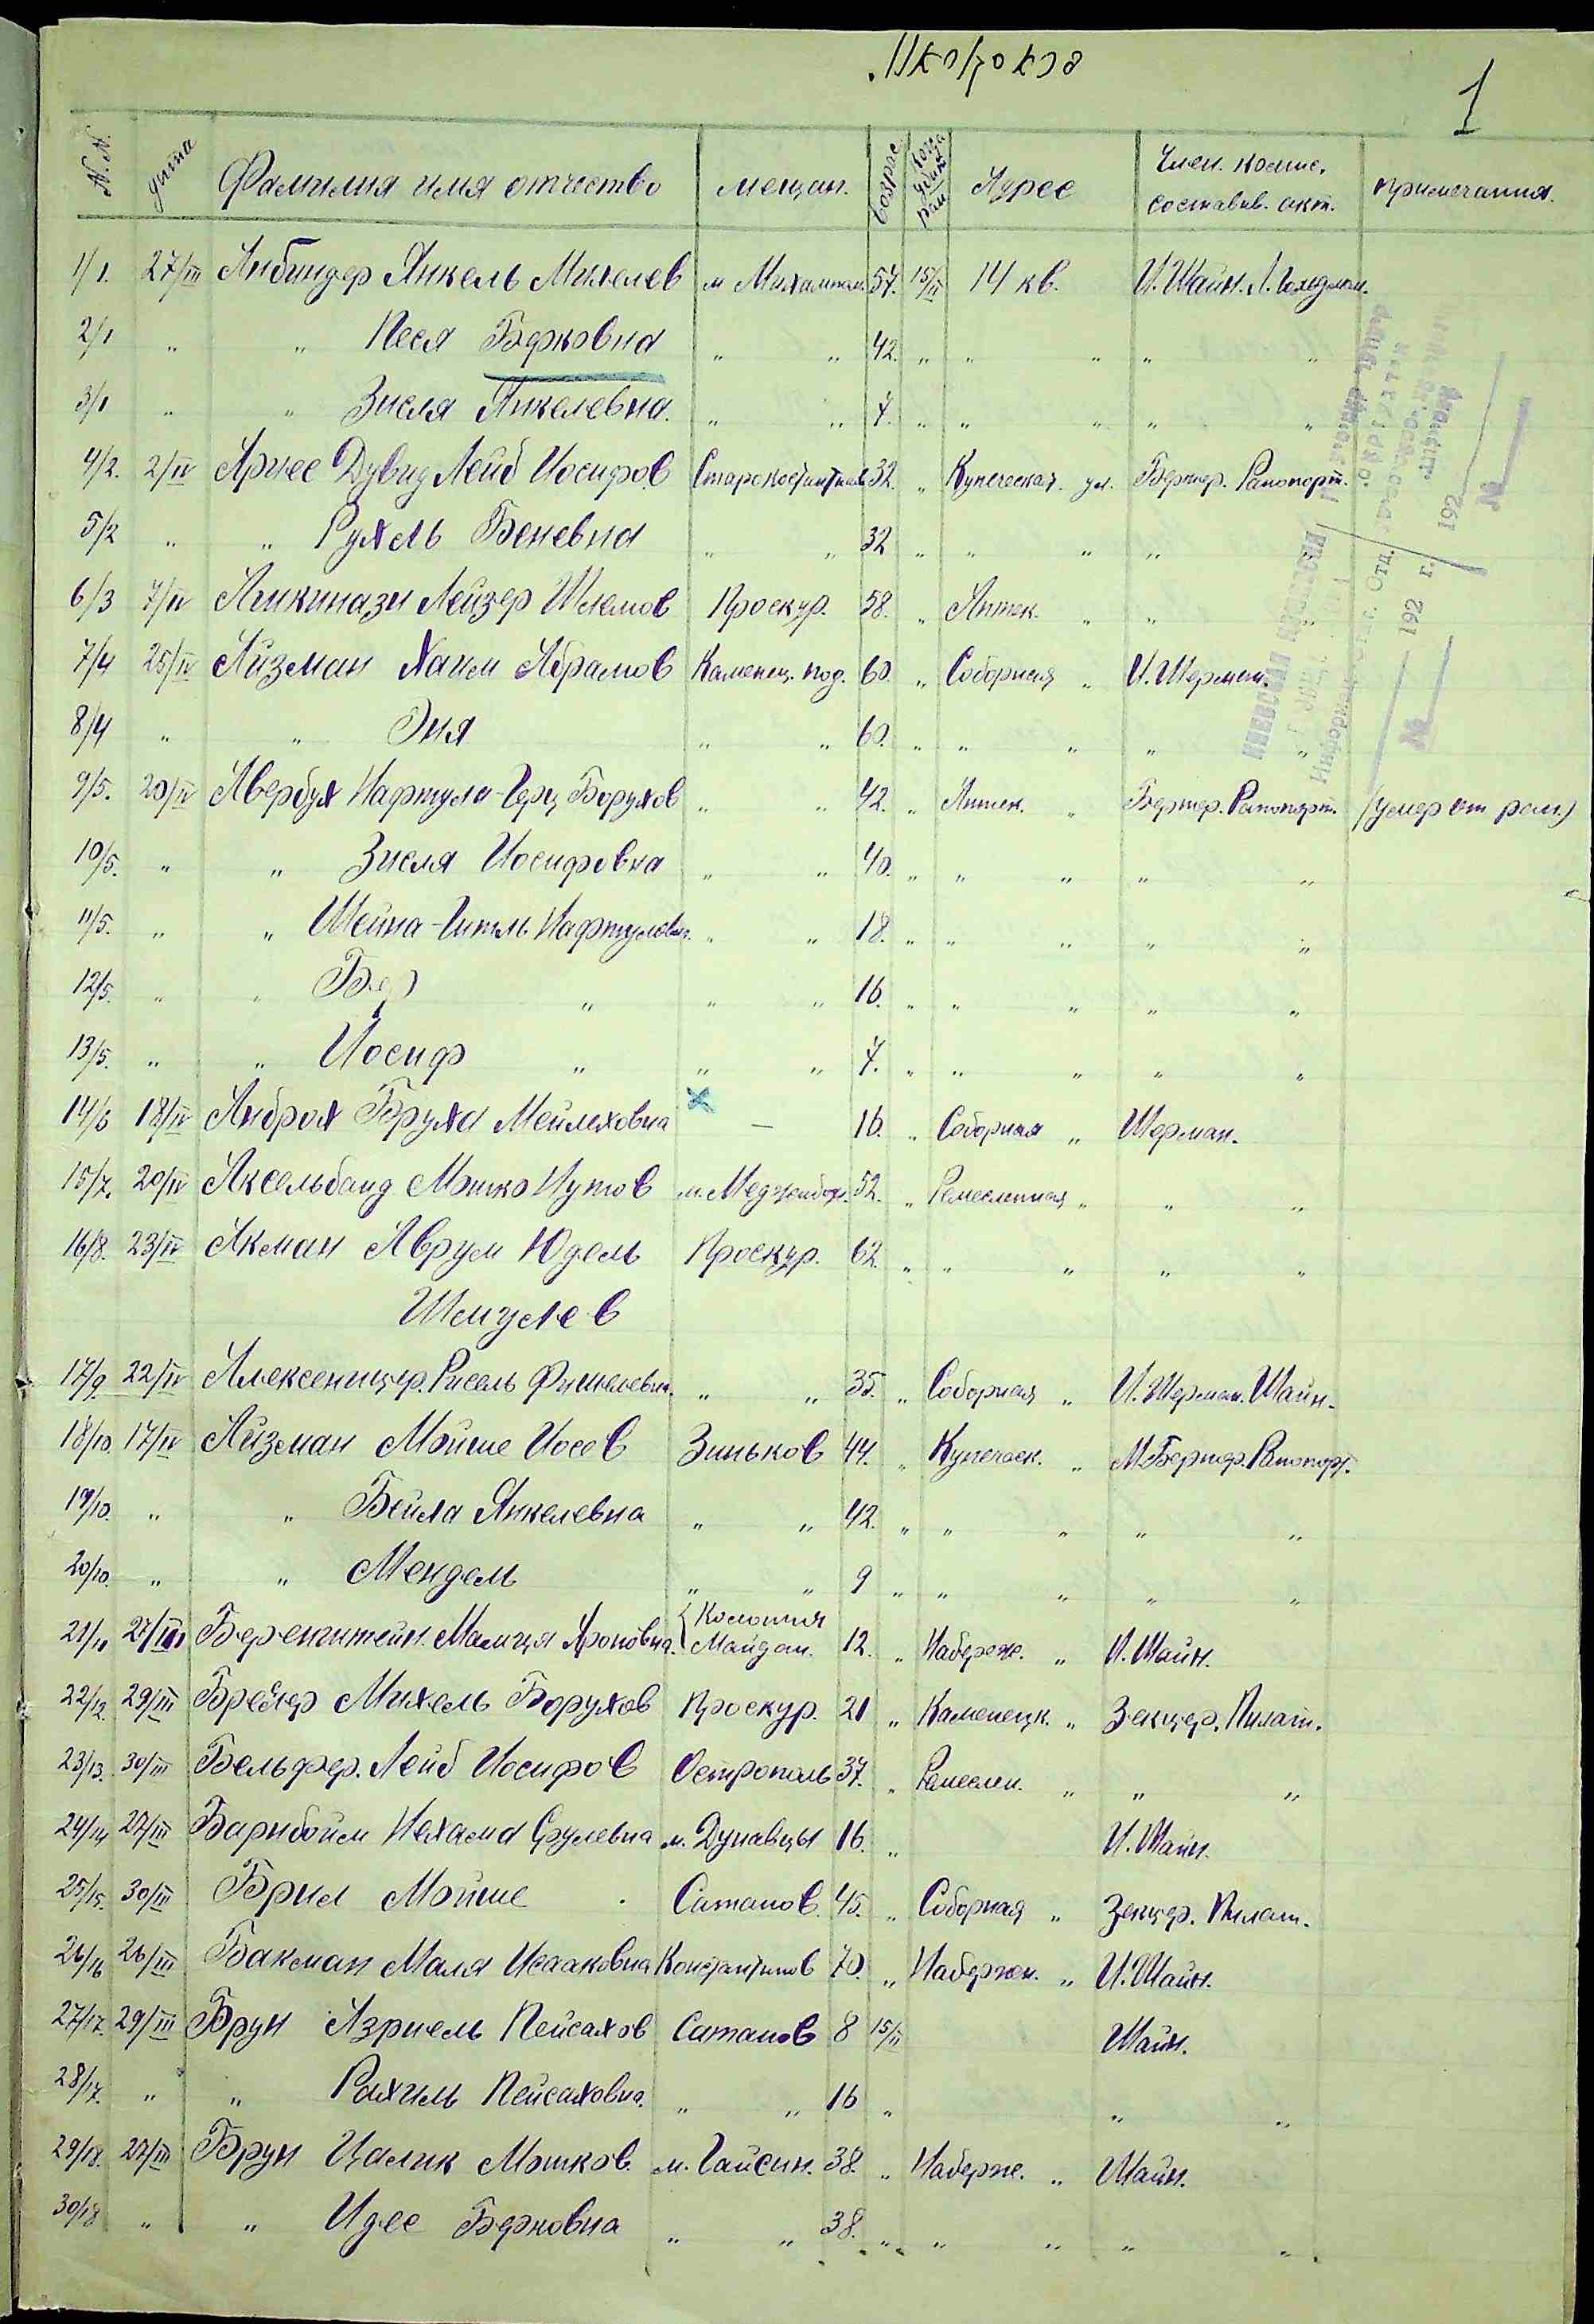 1
N.N. Фамилия имя отчество мещан. возрас. Адрес Член. комис. составив. акт. примечания.
1/1. 27/III Анбиндер Янкель Михелев м 54. 15/II 14 кв. И. Шайн. Л.
2/1 " " Песя Берковна " " 42. " " " " "
3/1 " " Зисля Янкелевна. " " 7. " " " " "
4/2. 2/IV Арнес Дувид Лейб Иосифов 32. " Купеческая ул. Бернер. Рапопорт.
5/2 " " Рухель Беневна " " 32 " " " "
6/3 7/IV Ашкинази Лейзер Шлемов Проскур. 58. " Аптек. " " "
7/4 25/IV Айзман Хаим Абрамов Каменец. под. 60. " Соборная " И. Шерман.
8/4 " " Эня " " 60. " " " " "
9/5. 20/IV Авербух Нафтула-Герц Борухов " " 42. " Аптек. " Бернер. Рапопорт. (умер от ран.)
10/5. " " Зисля Иосифовна " " 40. " " " " "
11/5. " " Шейна-Гитль Нафтуловн. " " 18. " " " " "
12/5. " " Бер " " " 16. " " " " "
13/5. " " Иосиф " " " 7. " " " " "
14/6 18/IV Анброх Бруха Мейлеховна — 16. " Соборная " Шерман.
15/7. 20/IV Аксельбанд Мошко Нутов м. Меджибож. 52. " Ремесленная " " "
16/8. 23/IV Акман Аврум Юдель Проскур. 62. " " " " "
Шмулев
17/9. 22/IV Алексеницер. Рисель Фишелевна. " " 35. " Соборная " И. Шерман. Шайн.
18/10. 17/IV Айзман Мойше Иосев Зиньков 44. " Купеческ. " М. Бернер. Рапопорт.
19/10. " " Бейла Янкелевна " " 42. " " " " "
20/10. " " Мендель " " 9 " " " " "
21/11 27/III Беренштейн. Малця Ароновна. Колония Майдан. 12. " Набереж. " И. Шайн.
22/12. 29/III Брейер Михель Борухов Проскур. 21 " Каменецк. " Зекцер. Пилат.
23/13. 30/III Бельфер. Лейб Иосифов Острополь 37. " Ремеслен. " " "
24/14 27/III Барнбойм Нехама Срулевна м. Дунаевцы 16. " И. Шайн.
25/15. 30/III Брил Мойше Сатанов. 45. " Соборная " Зекцер. Пилат.
26/16 26/III Бакман Маля Исааковна Константинов 70. " Набереж. " И. Шайн.
27/17. 29/III Брун Азриель Пейсахов Сатанов 8 15/II Шайн.
28/17. " " Рахиль Пейсаховна. " " 16 " " "
29/18. 27/III Брун Цалик Мошков. м. Гайсин. 38. " Набереж. " Шайн.
30/18 " " Идес Берковна " " 38. " " " " "